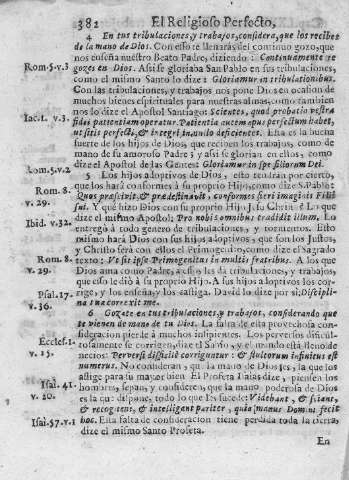 382 El Religioso Perfecto,
4 En tus tribulaciones, y trabajos, considera, que los recibes
de la mano de Dios. Con esto te llenaràs del continuo gozo, que
nos enseña nuestro Beato Padre, diziendo: Continuamente te
Rom. 5. v. 3. gozes en Dios. Assi se gloriaba San Pablo en sus tribulaciones,
como el mismo Santo lo dize: Gloriamur in tribulationibus.
Con las tribulaciones, y trabajos nos pone Dios en ocasion de
muchos bienes espirituales para nuestras almas, como tambien
Iac. 1. v. 3. nos lo dize el Apostol Santiago: Scientes, quod probatio vestræ
fidei patientiam operatur. Patientia autem opus perfectum habet,
ut sitis perfecti, & integri in nullo deficientes. Esta es la buena
suerte de los hijos de Dios, que reciben los trabajos, como de
mano de su amoroso Padre; y assi se glorian en ellos, como
Rom. 5. v. 2 dize el Apostol de las Gentes: Gloriamur in spe filiorum Dei.
5 Los hijos adoptivos de Dios, esto tendràn por cierto,
Rom. 8. que los harà conformes à su proprio Hijo, como dize S. Pablo:
v. 29. Quos præscivit, & prædestinavit, conformes fieri imaginis Filii
sui. Y que hizo Dios con su proprio Hijo Jesu Christo? Lo que
Ibid. v. 32. dize el mismo Apostol: Pro nobis omnibus tradidit illum. Lo
entregò à todo genero de tribulaciones, y tormentos. Esto
mismo harà Dios con sus hijos adoptivos, que son los Justos,
y Christo serà con ellos el Primogenito, como dize el Sagrado
Rom. 8. texto: Ut sit ipse Primogenitus in multis fratribus. A los que
v. 29. Dios ama como Padre, à essos les dà tribulaciones, y trabajos,
que esso le diò à su proprio Hijo. A sus hijos adoptivos los cor-
Psal. 17. rige, y los enseña, y los castiga. David lo dize por si: Discipli-
v. 36. na tua correxit me.
6 Gozate en tus tribulaciones, y trabajos, considerando que
te vienen de mano de tu Dios. La falta de esta provechosa con-
sideracion pierde à muchos impacientes. Los perversos dificul-
Eccles. 1. tosamente se corrigen, dize el Santo, y el mundo està lleno de
v. 15. necios: Perversi difficilè corriguntur: & stultorum infinitus est
numerus. No consideran, que la mano de Dios es, la que los
aflige para su mayor bien. El Profeta Isaias dize, piensen los
Isai. 41. hombres, sepan, y consideren, que la mano poderosa de Dios
v. 20. es la que dispone, todo lo que les sucede: Videant, & sciant,
& recogitent, & intelligant pariter, quia manus Domini fecit
Isai. 57. v. 1 hoc. Esta falta de consideracion tiene perdida toda la tierra,
dize el mismo Santo Profeta.
En